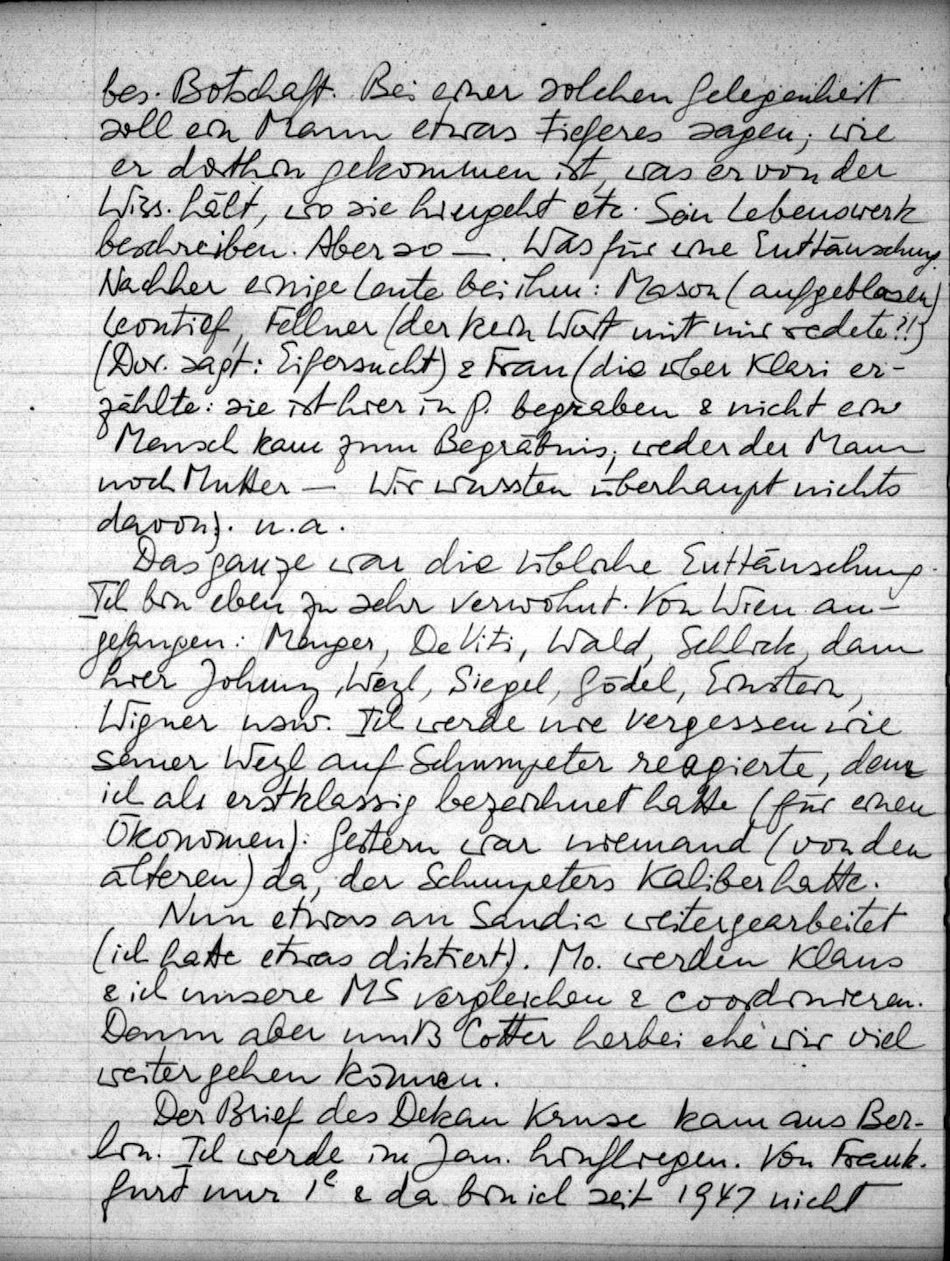 bes. Botschaft. Bei einer solchen Gelegenheit
soll ein Mann etwas Tieferes sagen, wie
er dorthin gekommen ist, was er von der
Wiss. hält, wo sie hingeht etc. Sein Lebenswerk
beschreiben. Aber so —. Was für eine Enttäuschung.
Nachher einige Leute bei ihm: Mason (aufgeblasen)
Leontief, Fellner (der kein Wort mit mir redete?!)
(Dor. sagt: Eifersucht) & Frau (die über Klari er-
zählte: sie ist hier in P. begraben & nicht ein
Mensch kam zum Begräbnis, weder der Mann
noch Mutter — Wir wussten überhaupt nichts
davon). u.a.
Das ganze war die übliche Enttäuschung.
Ich bin eben zu sehr verwöhnt. Von Wien an-
gefangen: Menger, De Viti, Wald, Schlick, dann
hier Johnny, Weyl, Siegel, Gödel, Einstein,
Wigner usw. Ich werde nie vergessen wie
seiner Weyl auf Schumpeter reagierte, den
ich als erstklassig bezeichnet hatte (für einen
Ökonomen). Gestern war niemand (von den
älteren) da, der Schumpeters Kaliber hatte.
Nun etwas an Sandia weitergearbeitet
(ich hatte etwas diktiert). Mo. werden Klaus
& ich unsere MS vergleichen & coordinieren.
Dann aber muß Cotter herbei ehe wir viel
weiter gehen können.
Der Brief des Dekan Kruse kam aus Ber-
lin. Ich werde im Jan. hinfliegen. Von Frank-
furt nur 1e & da bin ich seit 1947 nicht